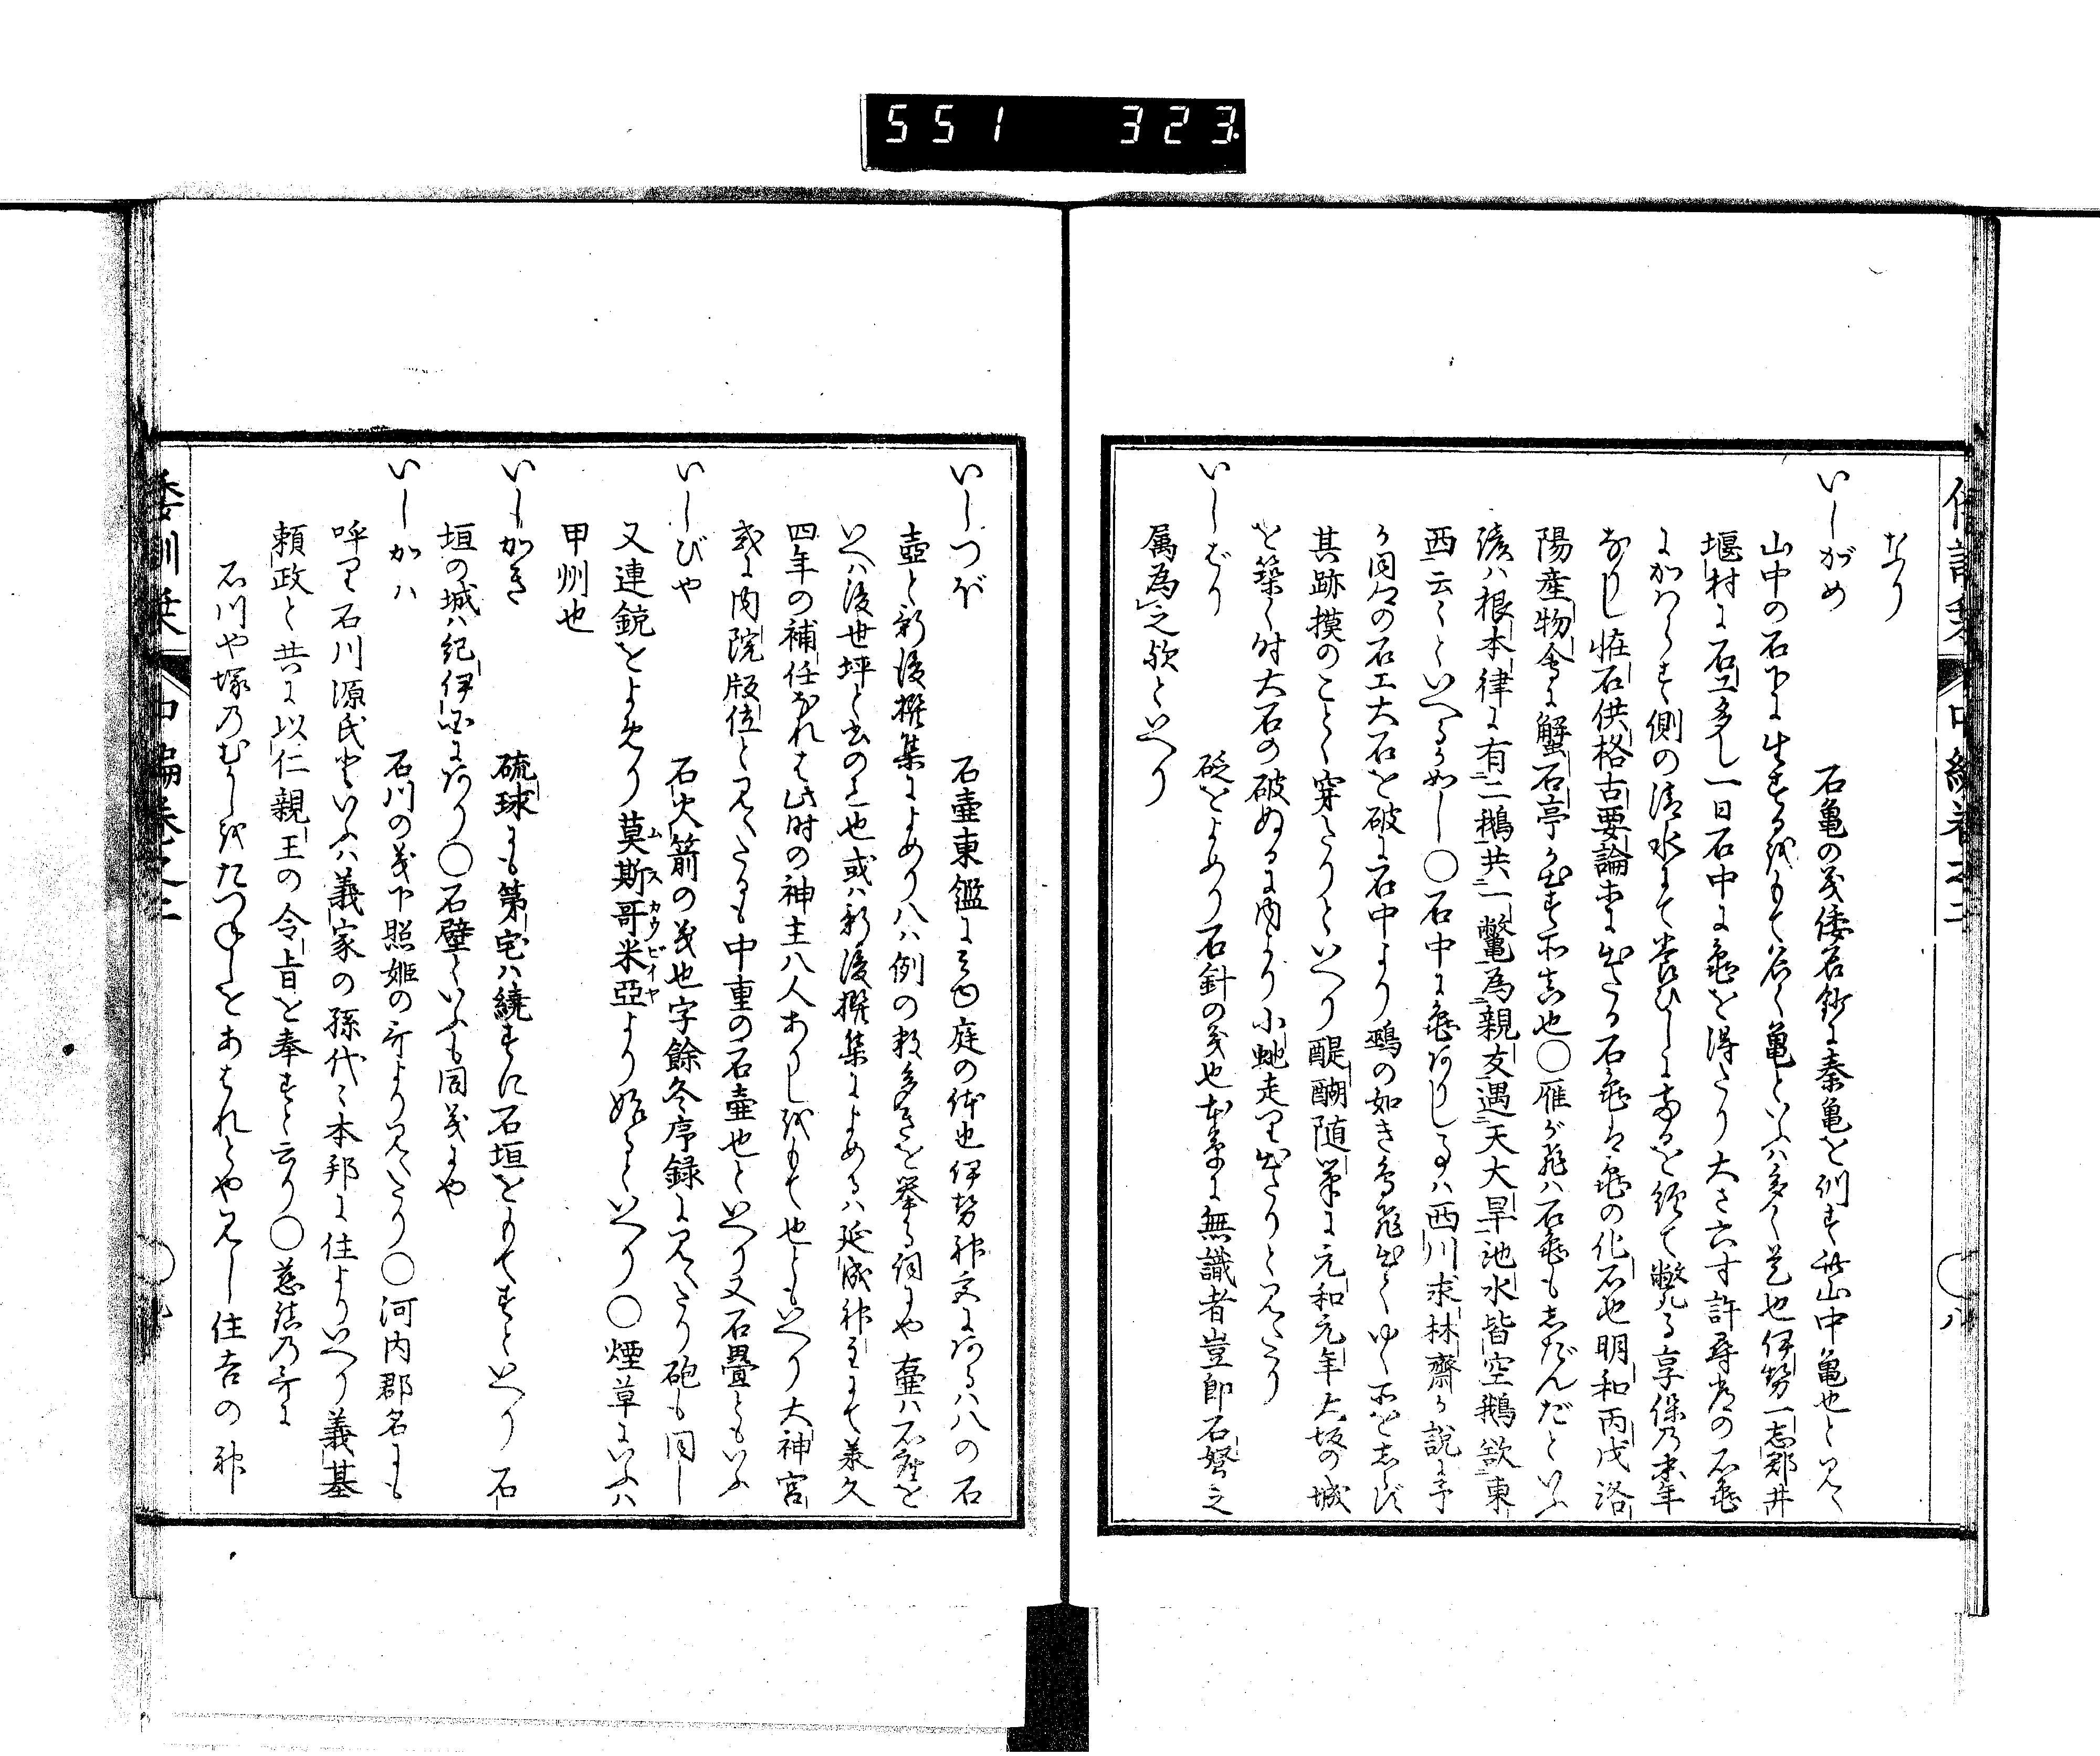 551 323
なり
いしがめ 石亀の義倭名鈔に秦亀を訓す沙山中亀也と見ゆ
山中の石下に生するをもて名く亀といふハ多く是也伊勢一志郡井
堰村に石工多し一日石中に亀を得たり大さ六寸許尋常の石亀
にかはらす側の清水にて養ひしに年を経て斃れる享保の末年
なりし怪石供格古要論等に出たる石亀は亀の化石也明和丙戌洛
陽産物会に蟹石亭が出す所真也〇雁が飛ハ石亀もぢだんだといふ
諺ハ根本律に有二鵝共一鼈為親友遇天大旱池水皆空鵝欲東
西云云といへるか如し〇石中に亀ありし事ハ西川求林齋か説に予
か同名の石工大石を破に石中より鵐の如き鳥飛出てゆく所をしらず
其跡摸のことく穿たりといへり醍醐随筆に元和元年大坂の城
を築く時大石の破ぬるに内より小虵走り出たりと見えたり
いしばり 砭をよめり石針の義也本草に無識者豈即石砮之
属為之歟といへり
いしつぼ 石壷東鑑に見ゆ庭の体也伊勢神文にあるハ八の石
壷と新後撰集によめり八ハ例の数多きを挙る詞にや壷ハ石座を
いへハ後世坪と書の也或ハ新後撰集によめるハ延成神主にて兼久
四年の補任なれは此時の神主八人ありしをもて也ともいへり大神宮
或に内院版位と見えたるも中重の石壷也といへり又石畳ともいふ
いしびや 石火箭の義也字餘冬序録に見えたり砲も同し
又連銃をよめり莫斯哥米亞ムスカウビイヤより始るといへり〇煙草にいふハ
甲州也
いしがき 硫球にも第宅ハ繞すに石垣をもてすといへり石
垣の城ハ紀伊国にあり〇石壁といふも同義にや
いしかハ 石川の義下照姫の歌より見えたり〇河内郡名にも
呼り石川源氏といふハ義家の孫代々本邦に住よりいへり義基
頼政と共に以仁親王の令旨を奉すと云り〇慈鎮の歌に
石川や塚のむかしをたつぬれとあはれとや見し住吉の神
倭訓栞 中編巻之二